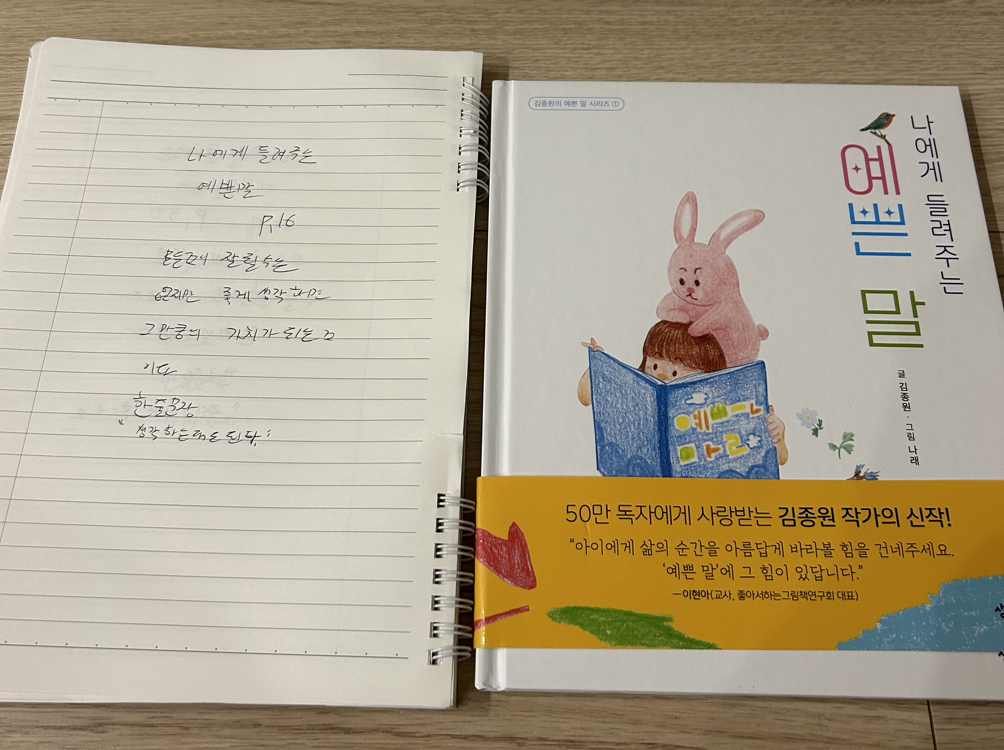 나에게 들려주는
예쁜말
P.16
모든것이 잘될수는
없지만 좋게 생각하면
그만큼의 가치가 되는것
이다
한줄문장
"생각하는대로 된다."
김종원의 예쁜 말 시리즈 ①
나에게 들려주는
예쁜 말
글 김종원 · 그림 나래
예쁘ㅡㄴ
마ㄹ
50만 독자에게 사랑받는 김종원 작가의 신작!
“아이에게 삶의 순간을 아름답게 바라볼 힘을 건네주세요.
‘예쁜 말’에 그 힘이 있답니다.”
—이현아(교사, 좋아서하는그림책연구회 대표)